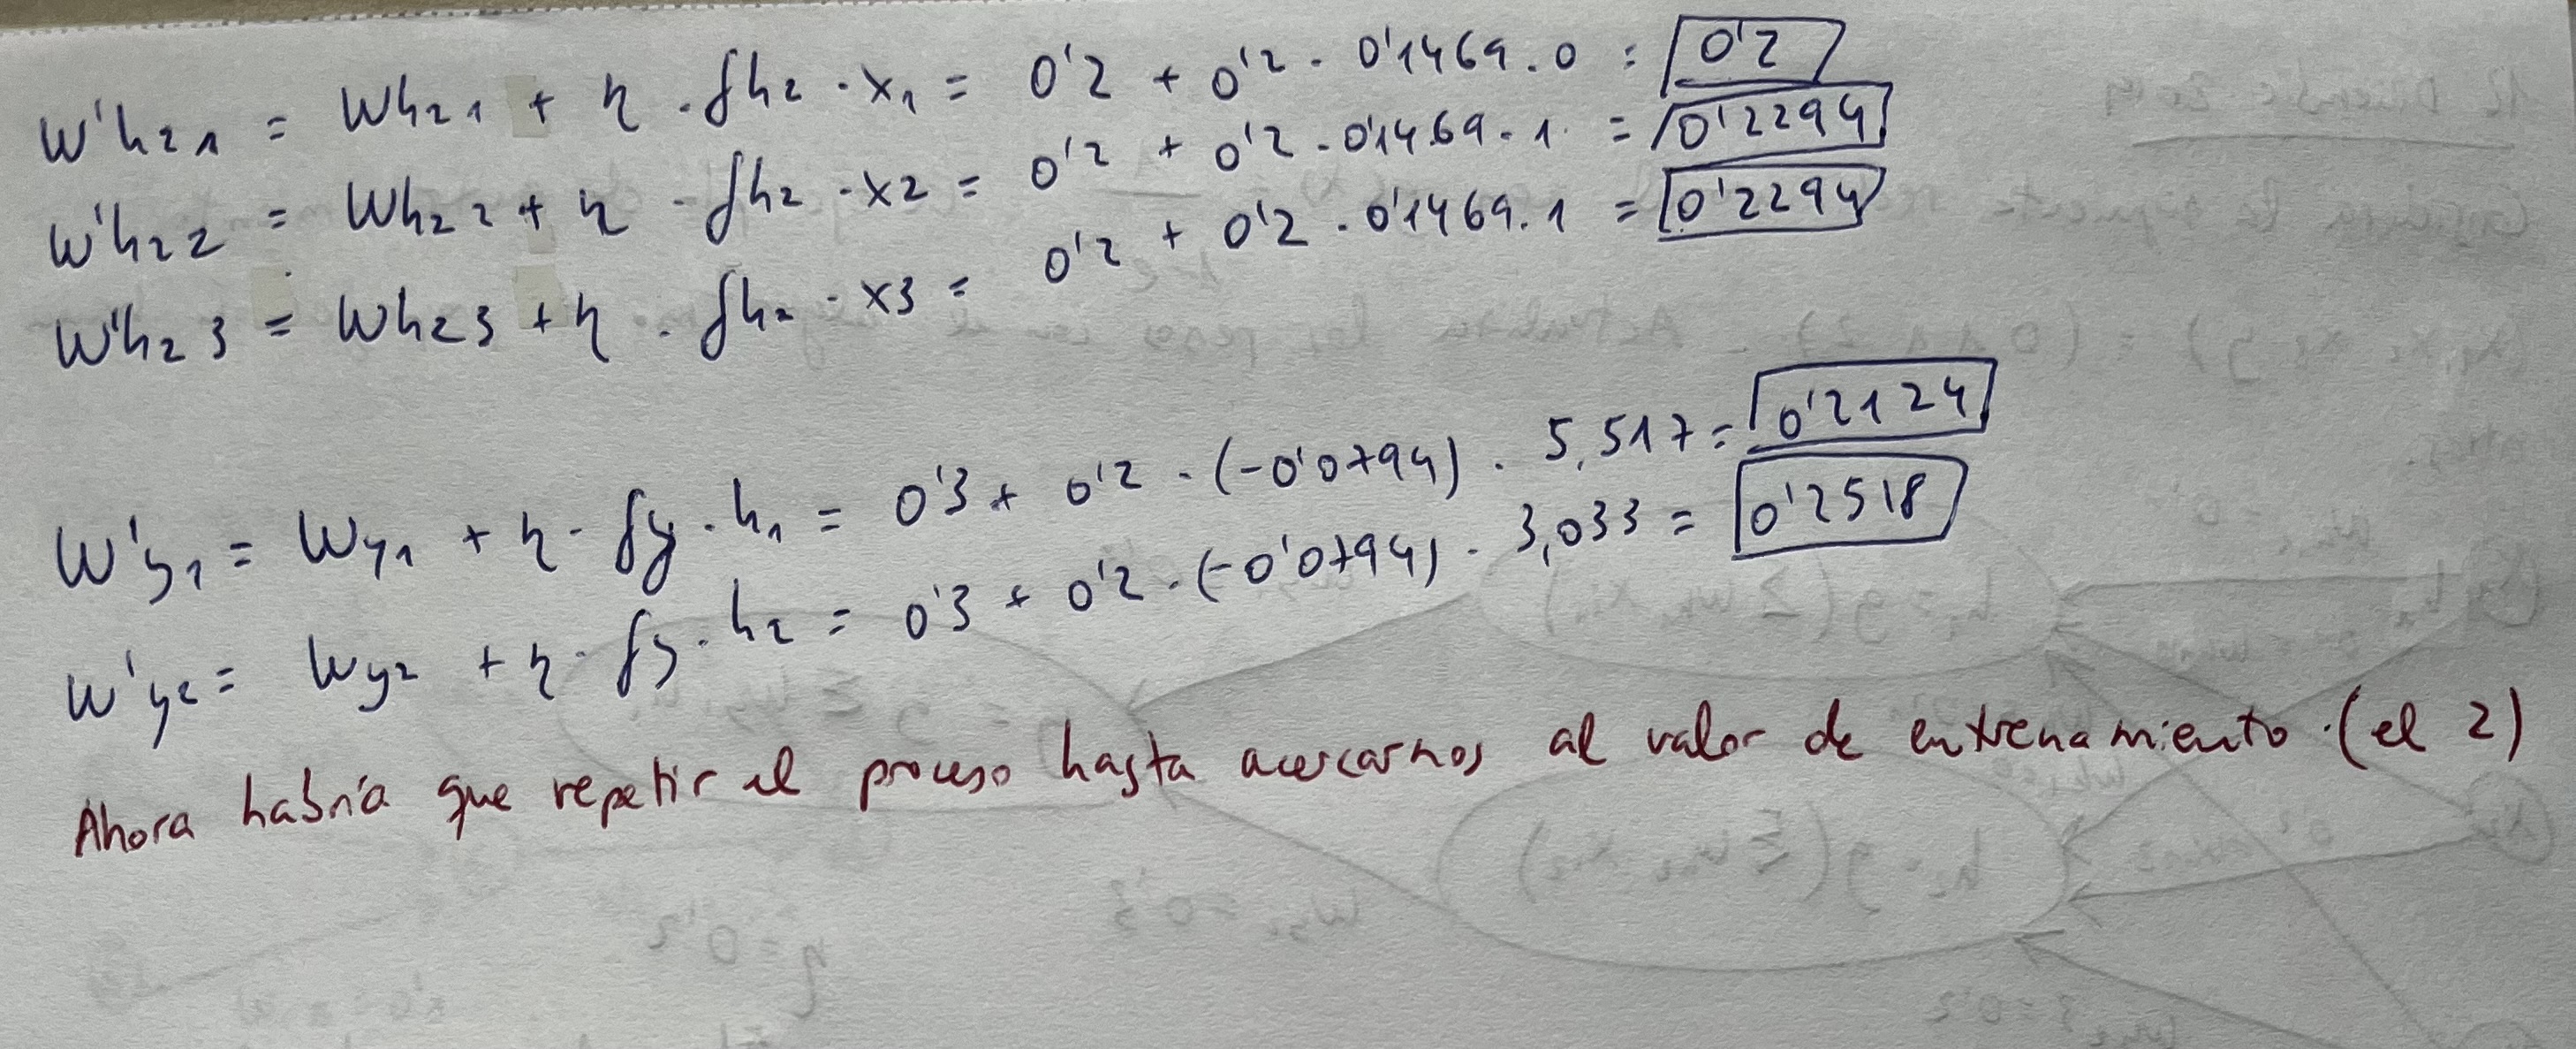 W'h₂₁ = Wh₂₁ + η · δh₂ · x₁ = 0'2 + 0'2 · 0'1469 · 0 = 0'2
W'h₂₂ = Wh₂₂ + η · δh₂ · x₂ = 0'2 + 0'2 · 0'1469 · 1 = 0'2294
W'h₂3 = Wh₂3 + η · δh₂ · x3 = 0'2 + 0'2 · 0'1469 · 1 = 0'2294
W'y₁ = Wy₁ + η · δy · h₁ = 0'3 + 0'2 · (-0'0794) · 5,517 = 0'2124
W'y₂ = Wy₂ + η · δy · h₂ = 0'3 + 0'2 · (-0'0794) · 3,033 = 0'2518
Ahora habría que repetir el proceso hasta acercarnos al valor de entrenamiento. (el 2)